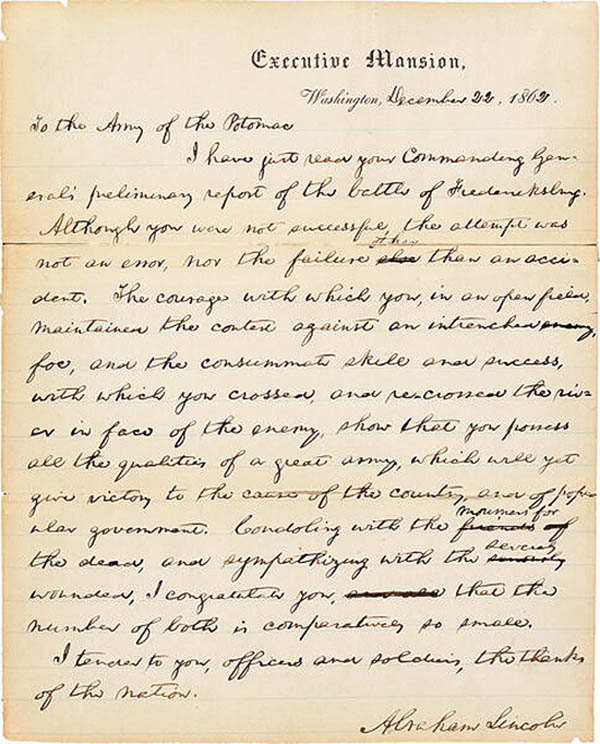 Executive Mansion,
Washington, December 22, 1862.
To the Army of the Potomac
I have just read your Commanding Gen-
eral's preliminary report of the battle of Fredericksburg.
Although you were not successful, the attempt was
not an error, nor the failure else other than an acci-
dent. The courage with which you, in an open field,
maintained the contest against an intrenched enemy,
foe, and the consummate skill and success,
with which you crossed, and re-crossed the riv-
er in face of the enemy, show that you possess
all the qualities of a great army, which will yet
give victory to the cause of the country and of popu-
lar government. Condoling with the friends of mourners for
the dead, and sympathizing with the severely
wounded, I congratulate you, that the
number of both is comparatively so small.
I tender to you, officers and soldiers, the thanks
of the nation.
Abraham Lincoln